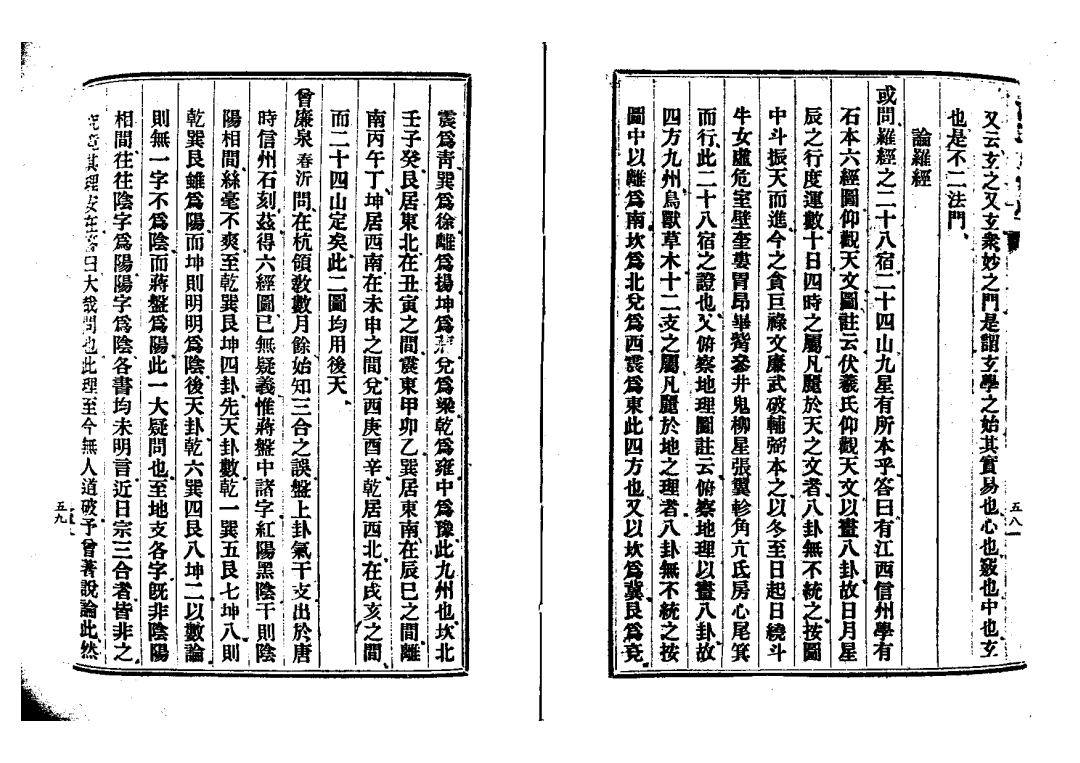 又云玄之又玄衆妙之門是謂玄學之始其實易也心也竅也中也玄
也是不二法門、
論羅經
或問羅經之二十八宿二十四山九星有所本乎答曰有江西信州學有
石本六經圖仰觀天文圖註云伏羲氏仰觀天文以畫八卦故日月星
辰之行度運數十日四時之屬凡麗於天之文者八卦無不統之按圖
中斗振天而進今之貪巨祿文廉武破輔弼本之以冬至日起日繞斗
牛女虛危室壁奎婁胃昂畢觜參井鬼柳星張翼軫角亢氐房心尾箕
而行此二十八宿之證也又俯察地理圖註云俯察地理以畫八卦故
四方九州鳥獸草木十二支之屬凡麗於地之理者八卦無不統之按
圖中以離爲南坎爲北兌爲西震爲東此四方也又以坎爲冀艮爲兗
五八
震爲靑巽爲徐離爲揚坤爲荆兌爲梁乾爲雍中爲豫此九州也坎北
壬子癸艮居東北在丑寅之間震東甲卯乙巽居東南在辰巳之間離
南丙午丁坤居西南在未申之間兌西庚酉辛乾居西北在戌亥之間
而二十四山定矣此二圖均用後天、
曾廉泉春沂問在杭領敎數月餘始知三合之誤盤上卦氣干支出於唐
時信州石刻茲得六經圖已無疑義惟蔣盤中諸字紅陽黑陰干則陰
陽相間絲毫不爽至乾巽艮坤四卦先天卦數乾一巽五艮七坤八則
乾巽艮雖爲陽而坤則明明爲陰後天卦乾六巽四艮八坤二以數論
則無一字不爲陰而蔣盤爲陽此一大疑問也至地支各字旣非陰陽
相間往往陰字爲陽陽字爲陰各書均未明言近日宗三合者皆非之
究竟其理安在答曰大哉問也此理至今無人道破予曾著說論此然
五九